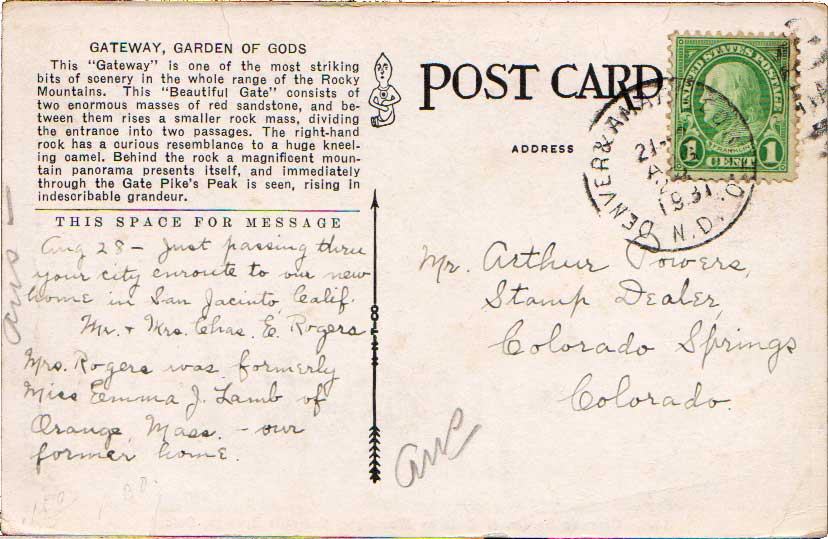 GATEWAY, GARDEN OF GODS
This "Gateway" is one of the most striking
bits of scenery in the whole range of the Rocky
Mountains. This "Beautiful Gate" consists of
two enormous masses of red sandstone, and be-
tween them rises a smaller rock mass, dividing
the entrance into two passages. The right-hand
rock has a curious resemblance to a huge kneel-
ing camel. Behind the rock a magnificent moun-
tain panorama presents itself, and immediately
through the Gate Pike's Peak is seen, rising in
indescribable grandeur.
THIS SPACE FOR MESSAGE
Aug 28 – Just passing thru
your city enroute to our new
home in San Jacinto, Calif.
Mr. + Mrs. Chas. E. Rogers
Mrs. Rogers was formerly
Miss Emma J. Lamb of
Orange, Mass. – our
former home.
POST CARD
ADDRESS
UNITED STATES POSTAGE
FRANKLIN
1 CENT 1
DENVER &
1931
Mr. Arthur Powers,
Stamp Dealer,
Colorado Springs
Colorado.
ans
ans